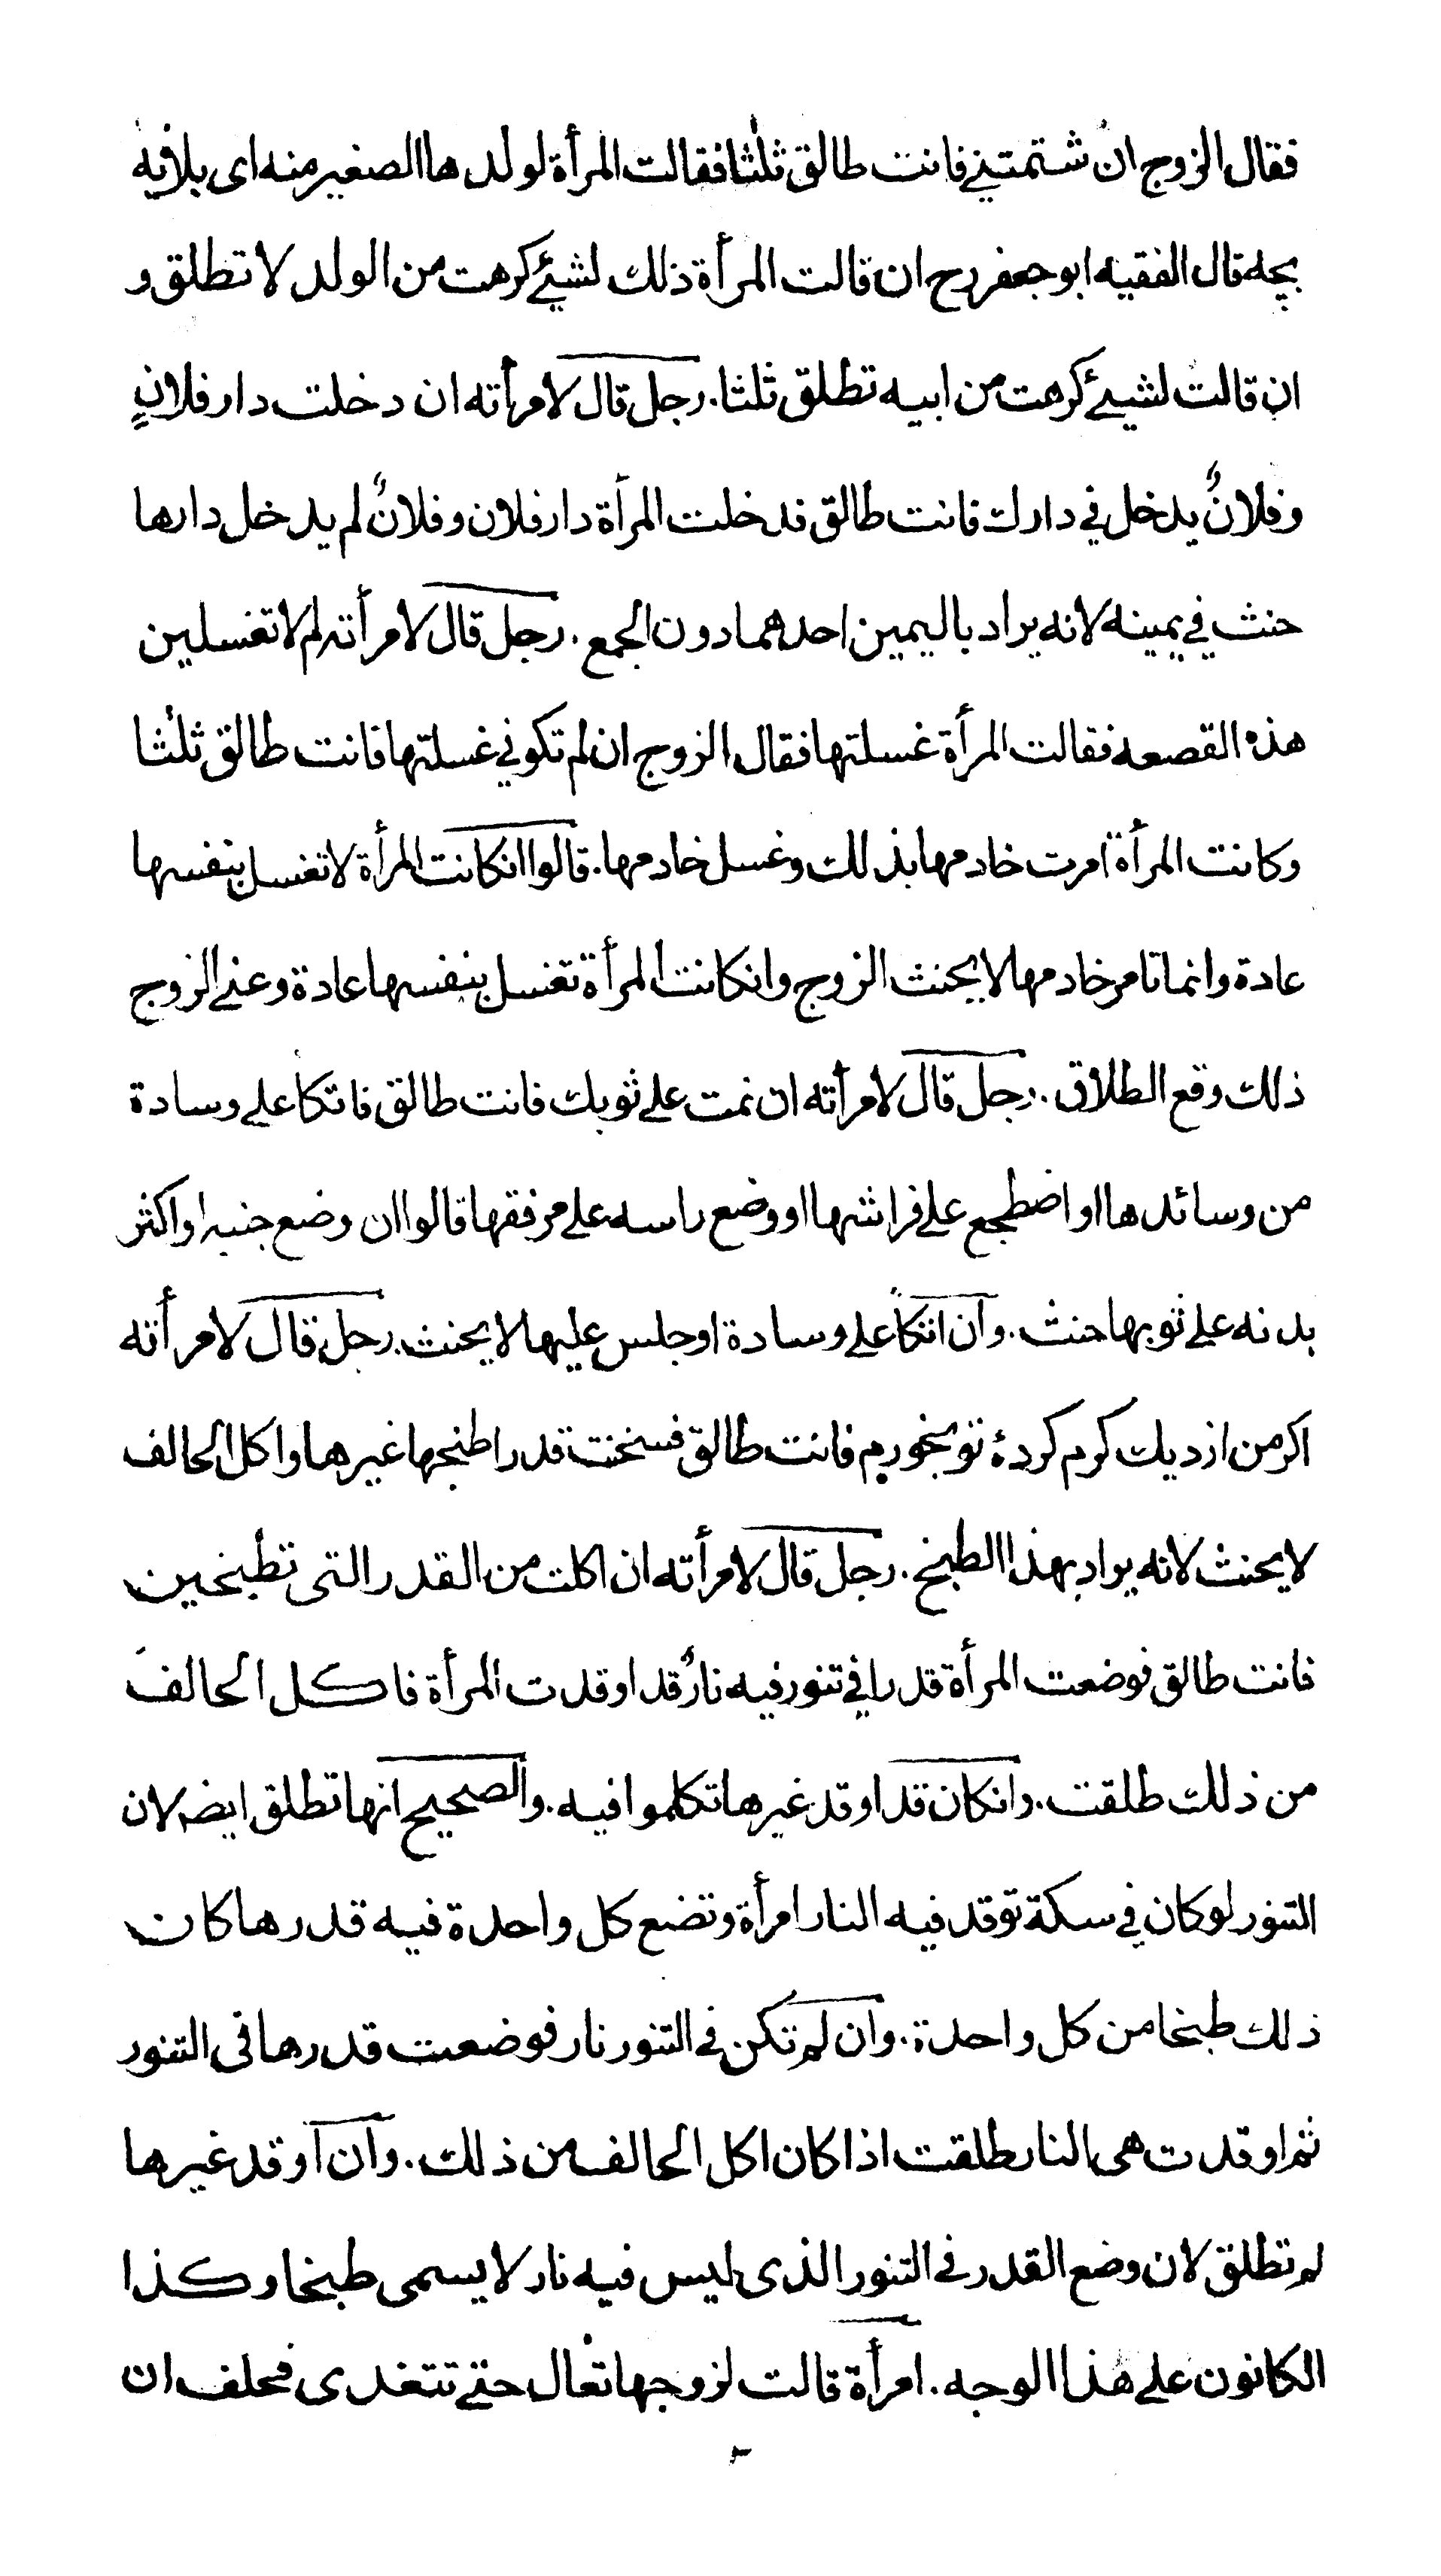 فقال الزوج ان شتمتني فانت طالق ثلثا فقالت المرأة لولدها الصغير منه اى بلايه
بچه قال الفقيه ابو جعفر رح ان قالت المرأة ذلك لشيئ كرهت من الولد لا تطلق و
ان قالت لشيئ كرهت من ابيه تطلق ثلثا. رجل قال لامرأته ان دخلت دار فلانٍ
وفلانٌ يدخل في دارك فانت طالق فدخلت المرأة دار فلان وفلانٌ لم يدخل دارها
حنث في يمينه لانه يراد باليمين احدهما دون الجمع. رجل قال لامرأته لم لا تغسلين
هذه القصعه فقالت المرأة غسلتها فقال الزوج ان لم تكوني غسلتها فانت طالق ثلثا
وكانت المرأة امرت خادمها بذلك وغسل خادمها. قالوا انكانت المرأة لا تغسل بنفسها
عادة وانما تامر خادمها لا يحنث الزوج وانكانت المرأة تغسل بنفسها عادة وعنى الزوج
ذلك وقع الطلاق. رجل قال لامرأته ان نمت على ثوبك فانت طالق فاتكا على وسادة
من وسائدها او اضطجع على فراشها او وضع راسه على مرفقها قالوا ان وضع جنبه او اكثر
بدنه على ثوبها حنث. وان اتكأ على وسادة او جلس عليها لا يحنث. رجل قال لامرأته
اكر من از ديك كرم كردۀ تو بخورم فانت طالق فسخنت قدرا طبخها غيرها واكل الحالف
لا يحنث لانه يراد بهذا الطبخ. رجل قال لامرأته ان اكلت من القدر التى تطبخين
فانت طالق فوضعت المرأة قدرا في تنور فيه نارٌ قد اوقدت المرأة فاكل الحالف
من ذلك طلقت. وانكان قد اوقد غيرها تكلموا فيه. والصحيح انها تطلق ايضه لان
التنور لو كان في سكة توقد فيه النار امرأة وتضع كل واحدة فيه قدرها كان
ذلك طبخا من كل واحدة. وان لم تكن في التنور نار فوضعت قدرها فى التنور
ثم اوقدت هى النار طلقت اذا كان اكل الحالف من ذلك. وان اوقد غيرها
لم تطلق لان وضع القدر في التنور الذى ليس فيه نار لا يسمى طبخا وكذا
الكانون على هذا الوجه. امرأة قالت لزوجها تعال حتى تتغدى فحلف ان